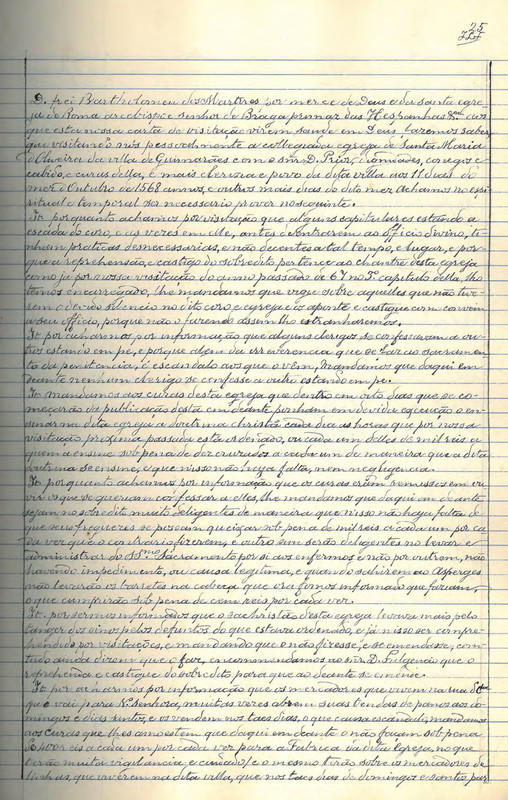 25
D. frei Bartholomeu dos Martires por merce de Deus e da santa egre-
ja de Roma arcebispo e senhor de Braga primaz das Hespanhas &ª aos
que esta nossa carta de visitação virem saude em Deus. Fazemos saber
que visitando nós pessoalmente a collegiada egreja de Santa Maria
d'Oliveira da villa de Guimarães com o snr. D. Prior, dignidades, conegos e
cabido, e curas della, e mais cleresia e povo da dita villa aos 11 dias do
mez d'Outubro de 1568 annos, e outros mais dias do dito mez achamos no espi-
ritual e temporal ser necessario prover no seguinte.
It. porquanto achamos por visitação que alguns capitulares estando a
escada do coro, e ás vezes em elle, antes d'entrarem ao officio divino, ti-
nham praticas desnecessarias, e não decentes a tal tempo, e lugar, e por-
que a reprehensão, e castigo do sobredito pertence ao chantre desta egreja
como já por nossa visitação do anno passado de 67 no 1º capitulo della, lho
temos encarregado, lhe mandamos que vigie sobre aquelles que não tive-
rem o devido silencio no dito coro e egreja e os aponte e castigue com convem
a seu officio, porque não o fazendo assim lho estranharemos.
It. por acharmos por informação que alguns clerigos se confessavam a ou-
tros estando em pé, e porque alem da irreverencia que se faz ao sacramen-
to da penitencia, é escandalo aos que o vêm, mandamos que daqui em
deante nenhum clerigo se confesse a outro estando em pé.
It. mandamos aos curas desta egreja que dentro em oito dias que se co-
meçarão da publicação desta em deante ponham em devida execução o en-
sinar na dita egreja a doutrina christã cada dia as horas que por nossa
visitação proxima passada está ordenado, ou cada um delles de mil reis a
quem a ensine sob pena de dez cruzados a cada um de maneira que a dita
doutrina se ensine, e que nisso não haja falta, nem negligencia.
It. porquanto achamos por informação que os curas eram remissos em ou-
vir os que se queriam confessar a elles, lhe mandamos que daqui em deante
sejam no sobredito muito deligentes de maneira que nisso não haja falta de
que seus freguezes se possam queixar sob pena de mil reis a cada um por ca-
da vez que o contrario fizerem, e outro sim serão deligentes no levar e
administrar do SSmo Sacramento por si aos enfermos e não por outrem, não
havendo impedimento, ou causa legitima, e quando sahirem ao Asperges
não levarão os barretes na cabeça que ora fomos informado que faziam,
o que cumprirão sob pena de cem reis por cada vez.
It. por sermos informados que o sachristão desta egreja levava mais pelo
tanger dos sinos pelos defuntos do que estava ordenado, e já nisso ser compre-
hendido por visitações, e mandando que o não fizesse, e se emendasse, com
tudo ainda dizem que o faz, encommendamos ao snr. D. Fulgencio que o
reprehenda e castigue do sobredito para que ao deante se emende.
It. por acharmos por informação que os mercadores que vivem na rua
que vai para N. Senhora, muitas vezes abrem suas tendas de panos aos do-
mingos e dias santos, e os vendem nos taes dias, o que causa escandalo, mandamos
aos curas que lhes amoestem que daqui em deante o não façam sob pena
de a cada um por cada vez para a Fabrica da dita Egreja, no que
terão muita vigilancia e cuidado, e o mesmo terão sobre os mercadores de
linhas, que viverem na dita villa, que nos taes dias de domingos e santos